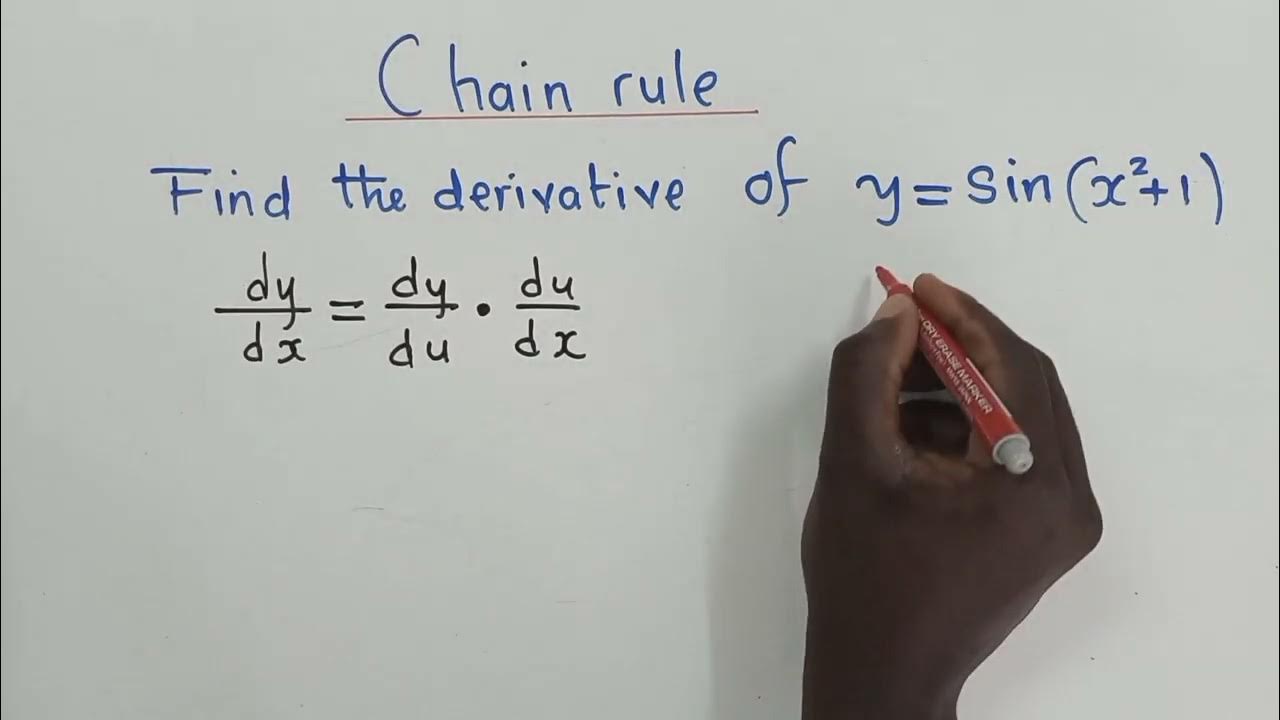 Chain rule
Find the derivative of y = Sin(x²+1)
dy/dx = dy/du · du/dx
DRY ERASE MARKER